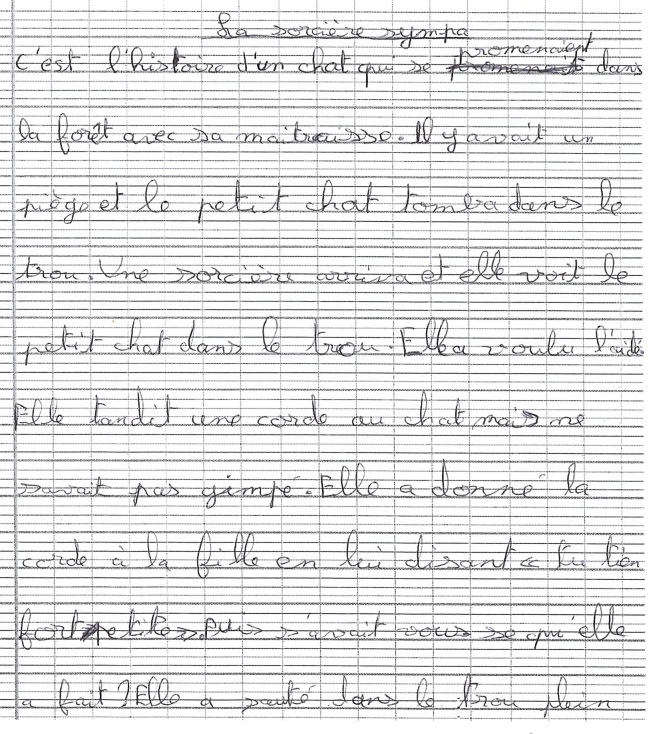 La sorcière sympa
C'est l'histoire d'un chat qui se promenaient dans
la forêt avec sa maitraisse. Il y avait un
piège et le petit chat tomba dans le
trou. Une sorcière arriva et elle voit le
petit chat dans le trou. Ella voulu l'aidé.
Elle tandit une corde au chat mais ne
savait pas gimpé. Elle a donné la
corde à la fille en lui disant « tu tien
fort petite ». Puis s'avait vous se qu'elle
a fait ? Elle a sauté dans le trou plein